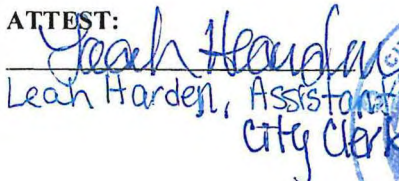 ATTEST:
Leah Harden
Leah Harden, Assistant
City Clerk